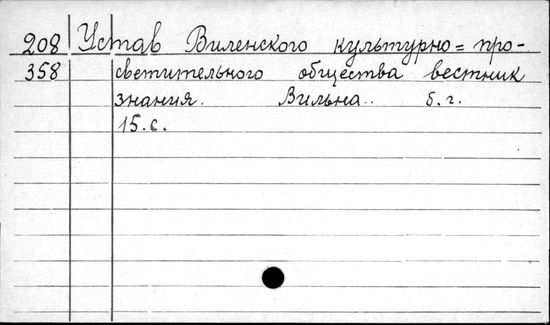 208 Устав Виленского культурно=про-
358 светительного общества вестник
знания. Вильна.. б.г.
15.с.